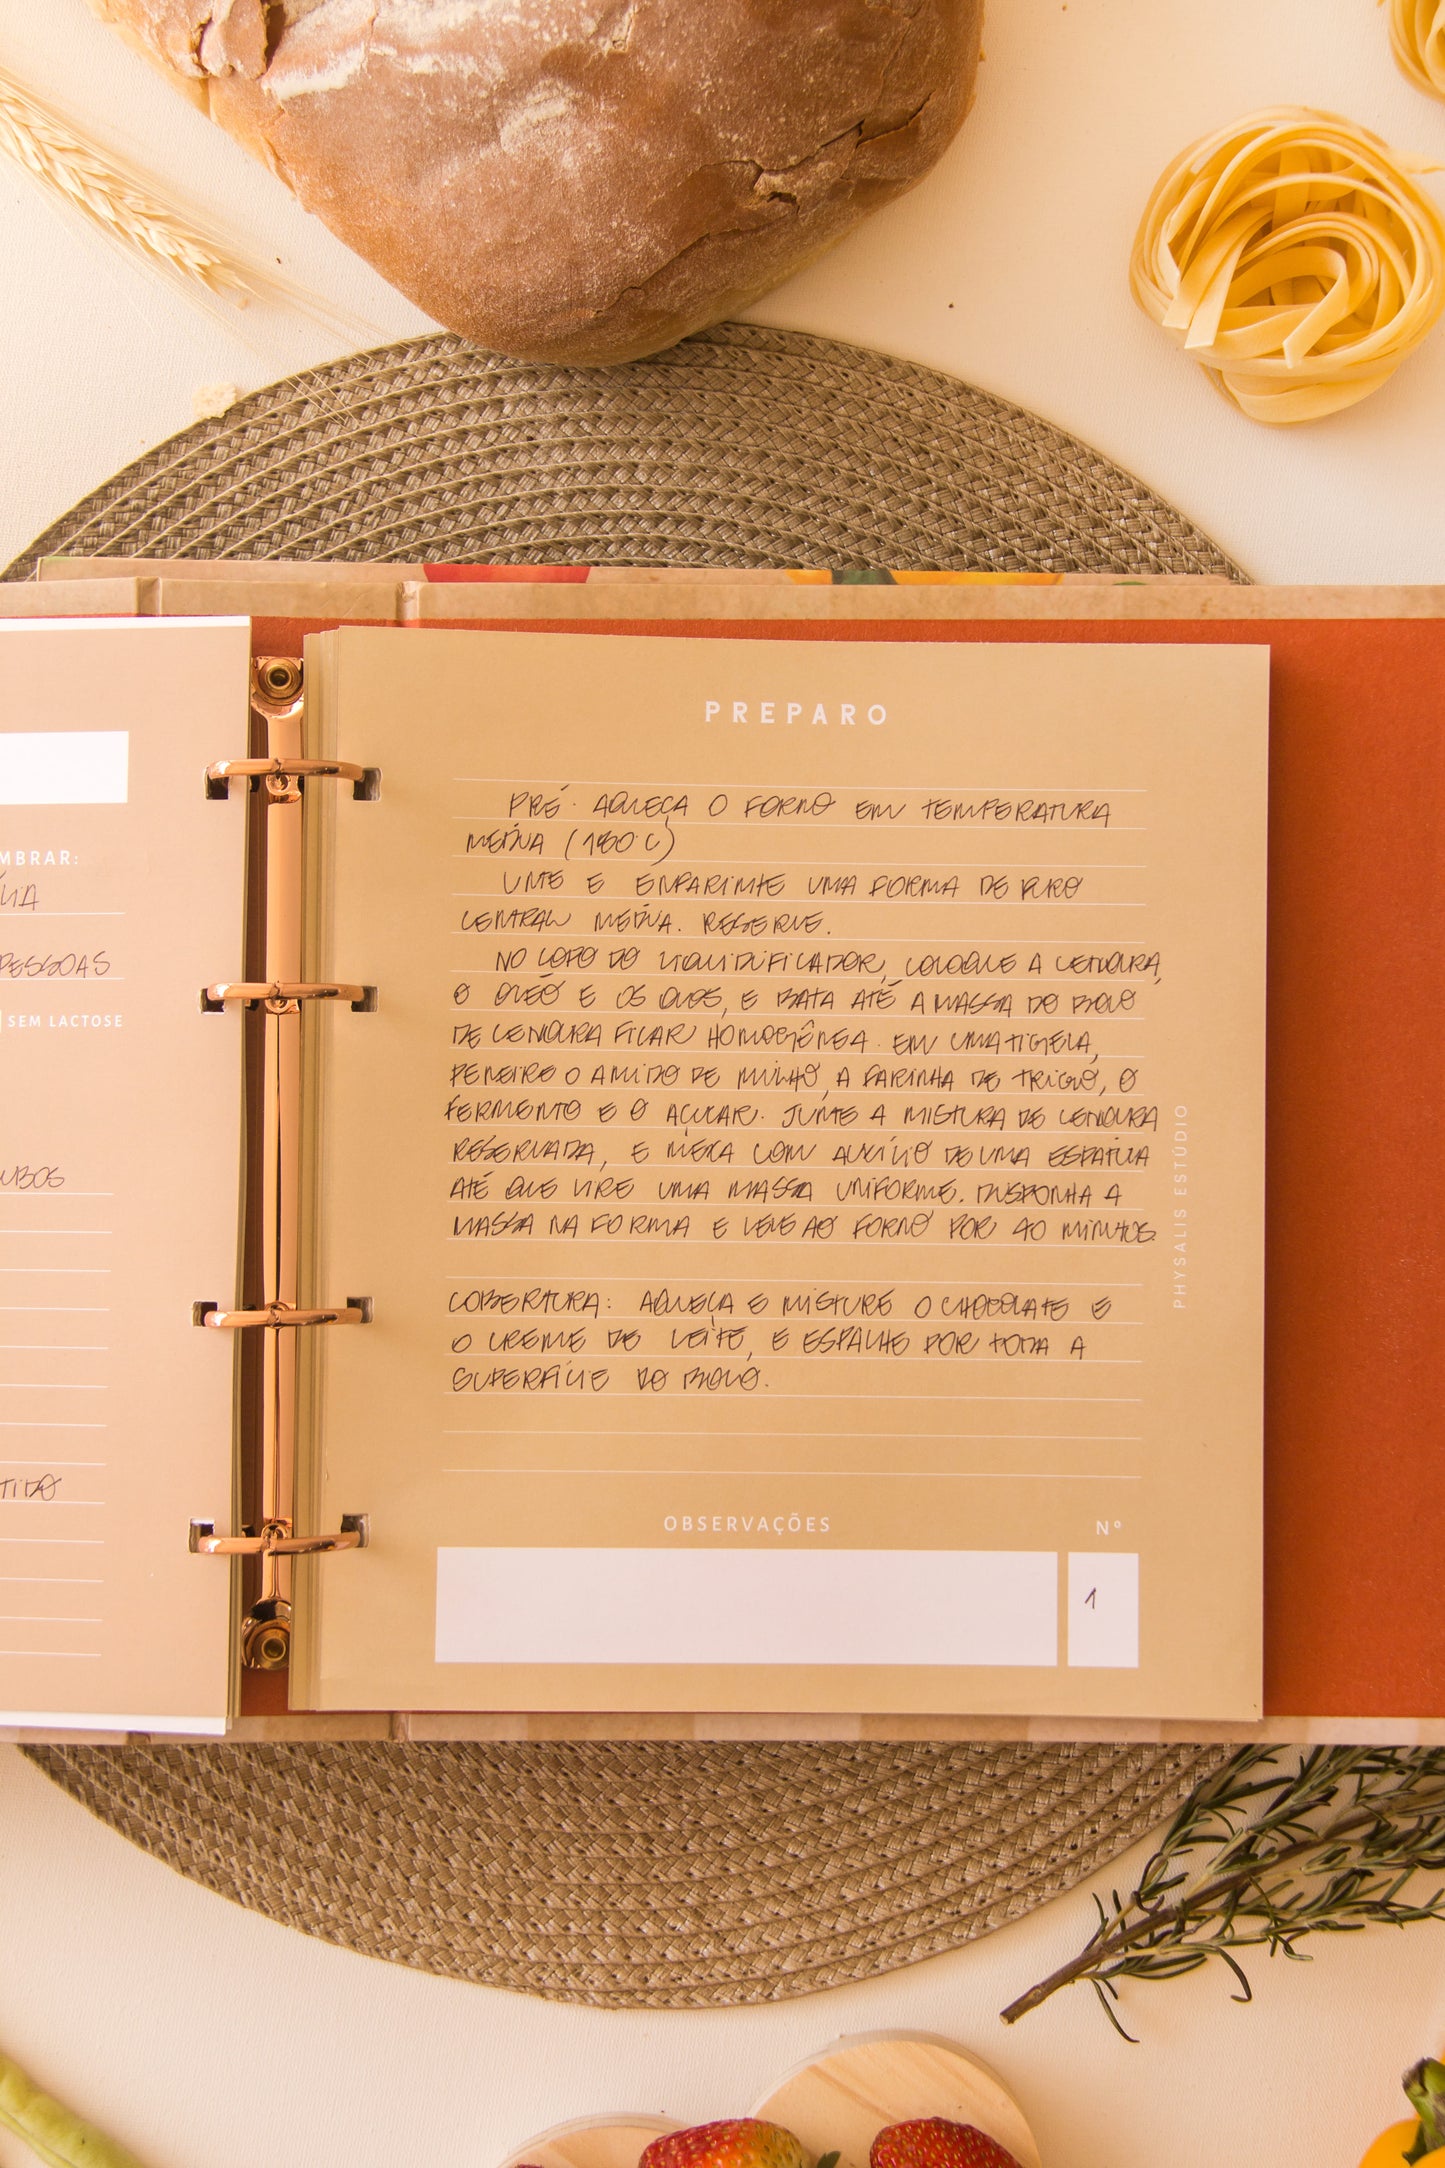 MBRAR:
PESSOAS
SEM LACTOSE
UBOS
TIDO
PREPARO
PRÉ-AQUEÇA O FORNO EM TEMPERATURA
MÉDIA (180°C)
UNTE E ENFARINHE UMA FORMA DE FURO
CENTRAL MÉDIA. RESERVE.
NO COPO DO LIQUIDIFICADOR, COLOQUE A CENOURA,
O ÓLEO E OS OVOS, E BATA ATÉ A MASSA DO BOLO
DE CENOURA FICAR HOMOGÊNEA. EM UMA TIGELA,
PENEIRE O AMIDO DE MILHO, A FARINHA DE TRIGO, O
FERMENTO E O AÇUCAR. JUNTE A MISTURA DE CENOURA
RESERVADA, E MEXA COM AUXÍLIO DE UMA ESPATULA
ATÉ QUE VIRE UMA MASSA UNIFORME. DISPONHA A
MASSA NA FORMA E LEVE AO FORNO POR 40 MINUTOS.
COBERTURA: AQUEÇA E MISTURE O CHOCOLATE E
O CREME DE LEITE, E ESPALHE POR TODA A
SUPERFÍCIE DO BOLO.
PHYSALIS ESTÚDIO
OBSERVAÇÕES
Nº
1